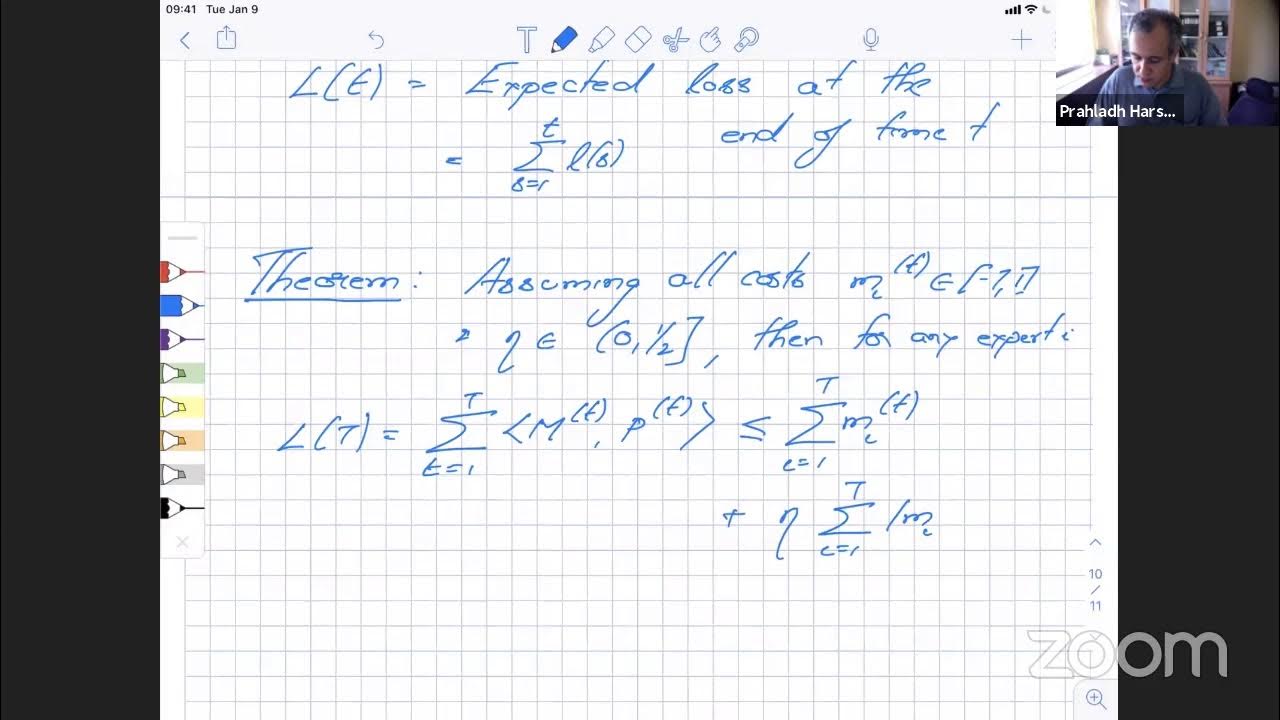 09:41 Tue Jan 9
Prahladh Hars...
L(t) = Expected loss at the
end of time t
= \sum_{s=1}^{t} l(s)
Theorem: Assuming all costs m_i^{(t)} ∈ [-1,1]
& η ∈ (0,1/2], then for any expert i
L(T) = \sum_{t=1}^{T} ⟨M^{(t)}, P^{(t)}⟩ ≤ \sum_{t=1}^{T} m_i^{(t)}
+ η \sum_{t=1}^{T} |m_i
10
/
11
zoom